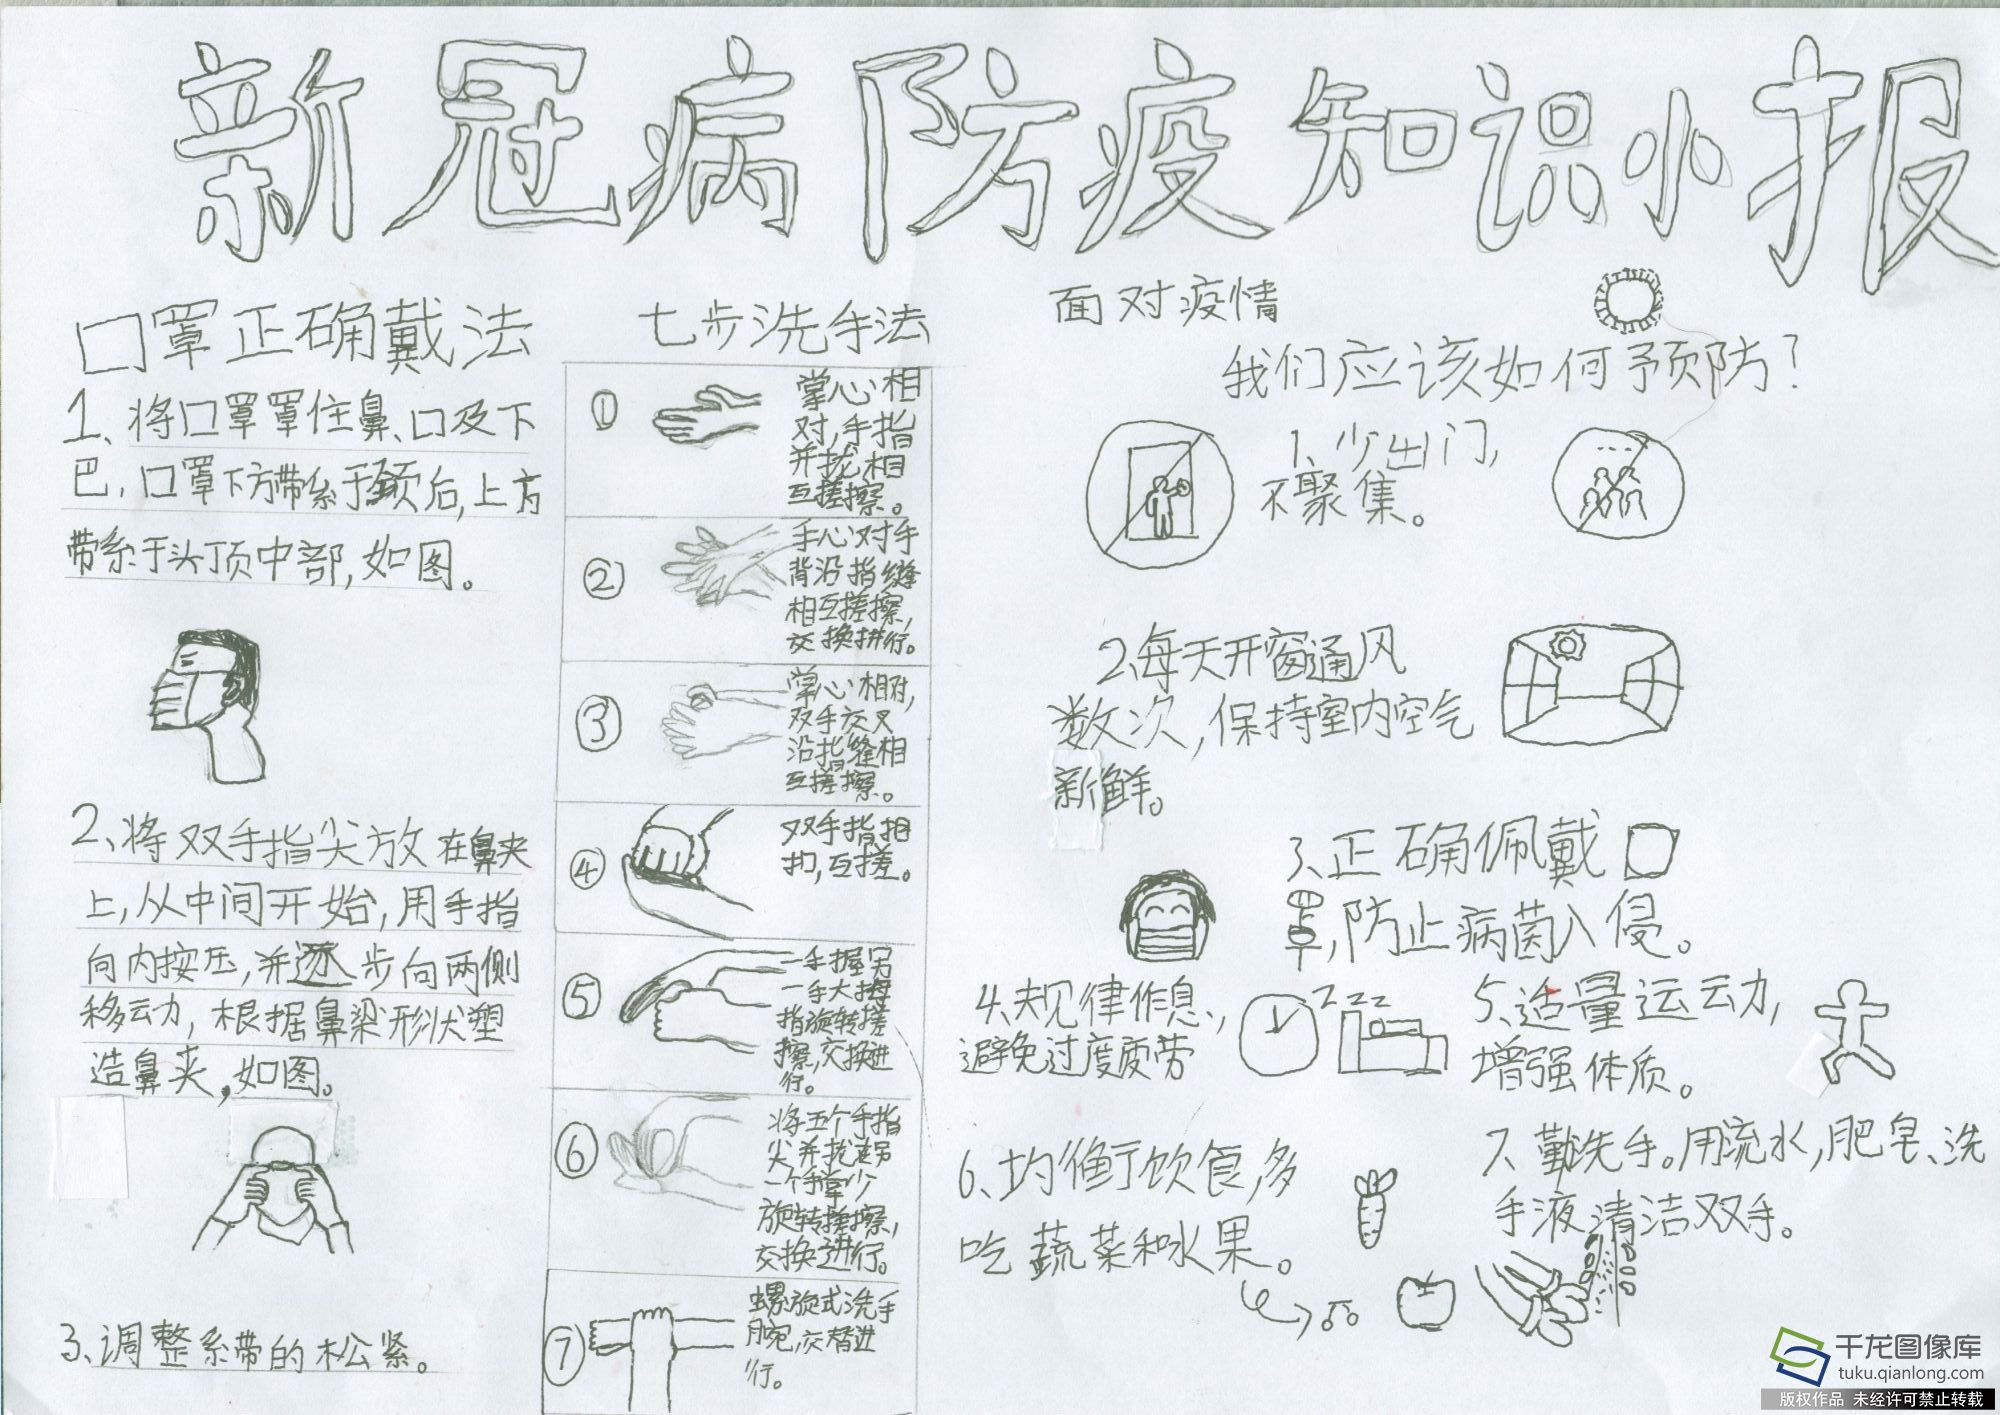 新冠病防疫知识小报
口罩正确戴法
1、将口罩罩住鼻、口及下
巴,口罩下方带系于颈后,上方
带系于头顶中部,如图。
2、将双手指尖放在鼻夹
上,从中间开始,用手指
向内按压,并逐步向两侧
移动,根据鼻梁形状塑
造鼻夹,如图。
3、调整系带的松紧。
七步洗手法
①
掌心相
对,手指
并拢,相
互搓擦。
②
手心对手
背沿指缝
相互搓擦,
交换进行。
③
掌心相对,
双手交叉
沿指缝相
互搓擦。
④
双手指相
扣,互搓。
⑤
一手握另
一手大拇
指旋转搓
擦,交换进
行。
⑥
将五个手指
尖并拢在另
一个手掌心
旋转搓擦,
交换进行。
⑦
螺旋式洗手
腕,交替进
行。
面对疫情
我们应该如何预防?
1、少出门,
不聚集。
2、每天开窗通风
数次,保持室内空气
新鲜。
3、正确佩戴口
罩,防止病菌入侵。
4、规律作息,
避免过度疲劳
zzz
5、适量运动,
增强体质。
6、均衡饮食,多
吃蔬菜和水果。
7、勤洗手。用流水,肥皂、洗
手液清洁双手。
千龙图像库
tuku.qianlong.com
版权作品 未经许可禁止转载